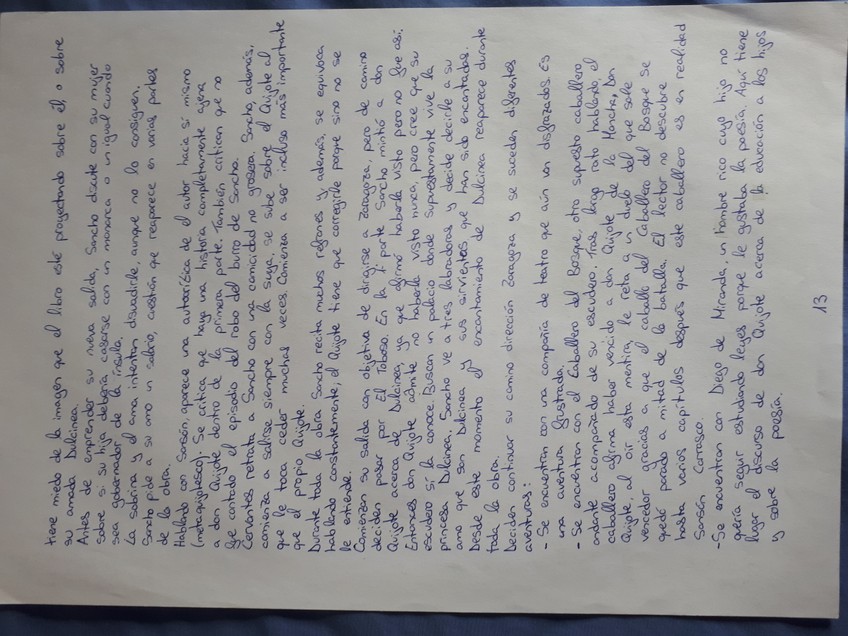 tiene miedo de la imagen que el libro esté proyectando sobre él, o sobre
su amada Dulcinea.
Antes de emprender su nueva salida, Sancho discute con su mujer
sobre si su hija debería casarse con un monarca o un igual cuando
sea gobernador de la ínsula.
La sobrina y el ama intentan disuadirle, aunque no lo consiguen.
Sancho pide a su amo un salario, cuestión que reaparece en varias partes
de la obra.
Hablando con Sansón, aparece una autocrítica de el autor hacia sí mismo
(metaquijotesco). Se critica que haya una historia completamente ajena
a don Quijote dentro de la primera parte. También critican que no
fue contado el episodio del robo del burro de Sancho.
Cervantes retrata a Sancho con una comicidad no grosera. Sancho, además,
comienza a salirse siempre con la suya, se sube sobre el Quijote al
que le toca ceder muchas veces. Comienza a ser incluso más importante
que el propio Quijote.
Durante toda la obra Sancho recita muchos refranes y además, se equivoca
hablando constantemente, el Quijote tiene que corregirle porque sino no se
le entiende.
Comienzan su salida con objetivo de dirigirse a Zaragoza, pero de camino
deciden pasar por El Toboso. En la 1ª parte Sancho mintió a don
Quijote acerca de Dulcinea, ya que afirmó haberla visto pero no fue así.
Entonces don Quijote admite no haberla visto nunca, pero cree que su
escudero sí la conoce. Buscan un palacio donde supuestamente vive la
princesa Dulcinea, Sancho ve a tres labradoras y decide decirle a su
amo que son Dulcinea y sus sirvientes que han sido encantadas.
Desde este momento el encantamiento de Dulcinea reaparece durante
toda la obra.
Deciden continuar su camino dirección Zaragoza y se suceden diferentes
aventuras:
- Se encuentran con una compañía de teatro que aún van disfrazados. Es
una aventura frustrada.
- Se encuentran con el Caballero del Bosque, otro supuesto caballero
andante acompañado de su escudero. Tras largo rato hablando, el
caballero afirma haber vencido a don Quijote de la Mancha, Don
Quijote, al oír esta mentira, le reta a un duelo del que sale
vencedor gracias a que el caballo del Caballero del Bosque se
quedó parado a mitad de la batalla. El lector no descubre
hasta varios capítulos después que este caballero es en realidad
Sansón Carrasco.
- Se encuentran con Diego de Miranda, un hombre rico cuyo hijo no
quería seguir estudiando leyes porque le gustaba la poesía. Aquí tiene
lugar el discurso de don Quijote acerca de la educación a los hijos
y sobre la poesía.
13